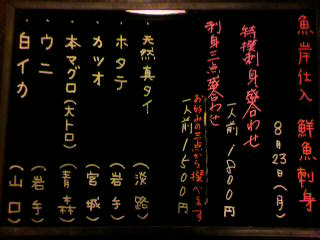 魚岸仕入 鮮魚刺身
8月23日(月)
特撰刺身盛合わせ
一人前 1800円
刺身三点盛合わせ
お好みの三点から選べます
一人前 1500円
・天然真タイ (淡路)
・ホタテ (岩手)
・カツオ (宮城)
・本マグロ(大トロ) (青森)
・ウニ (岩手)
・白イカ (山口)